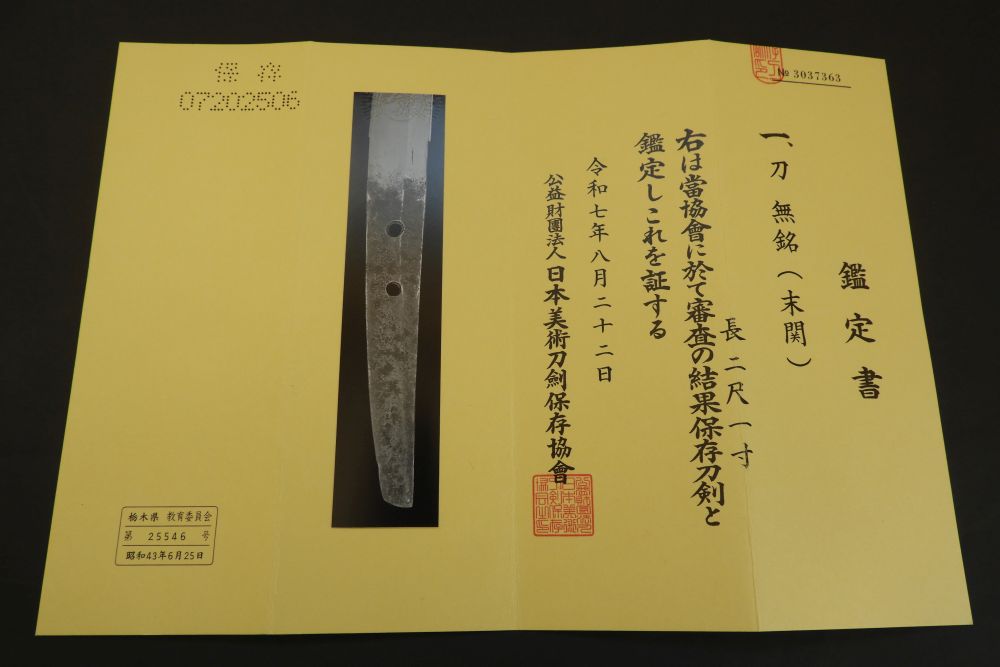 № 3037363
鑑定書
一、刀 無銘(末関)
長 二尺一寸
右は當協會に於て審査の結果保存刀剣と
鑑定しこれを証する
令和七年八月二十二日
公益財團法人日本美術刀劍保存協會
保存
07202506
栃木県 教育委員会
第 25546 号
昭和43年6月25日